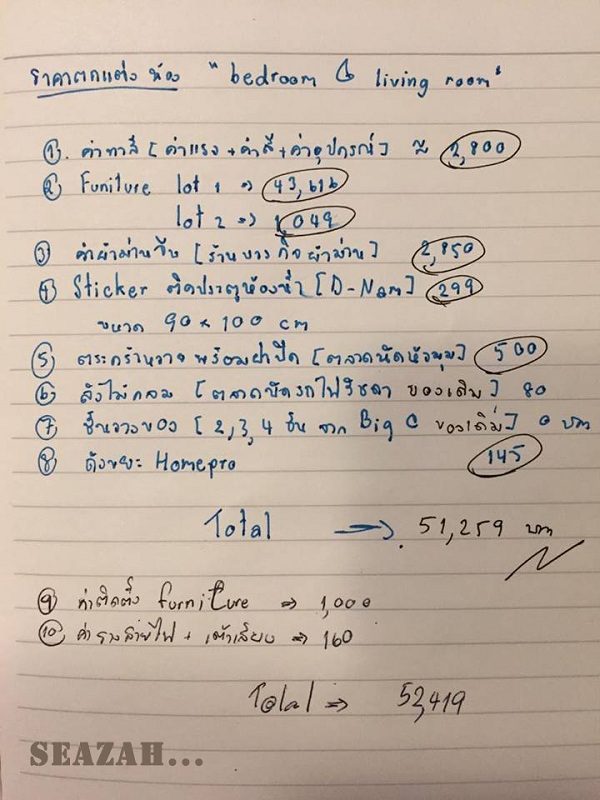 ราคาตกแต่ง ห้อง "bedroom & living room"
① ค่าทาสี [ค่าแรง + ค่าสี + ค่าอุปกรณ์] ≈ 2,800
② Funiture lot 1 => 43,616
lot 2 => 1,049
③ ค่าผ้าม่านจีบ [ร้านบางกิจผ้าม่าน] 2,850
④ Sticker ติดประตูห้องน้ำ [D-Nam] 299
ขนาด 90 x 100 cm
⑤ ตระกร้าหวาย พร้อมฝาปิด [ตลาดนัดหัวมุม] 500
⑥ ลังไม้กลม [ตลาดนัดรถไฟรัชดา ของเดิม] 80
⑦ ชั้นวางของ [2,3,4 ชั้น จาก Big C ของเดิม] 0 บาท
⑧ ถังขยะ Homepro 145
Total → 51,259 บาท
⑨ ค่าติดตั้ง furniture => 1,000
⑩ ค่ารางสายไฟ + เต้าเสียบ => 160
Total => 52,419
SEAZAH...